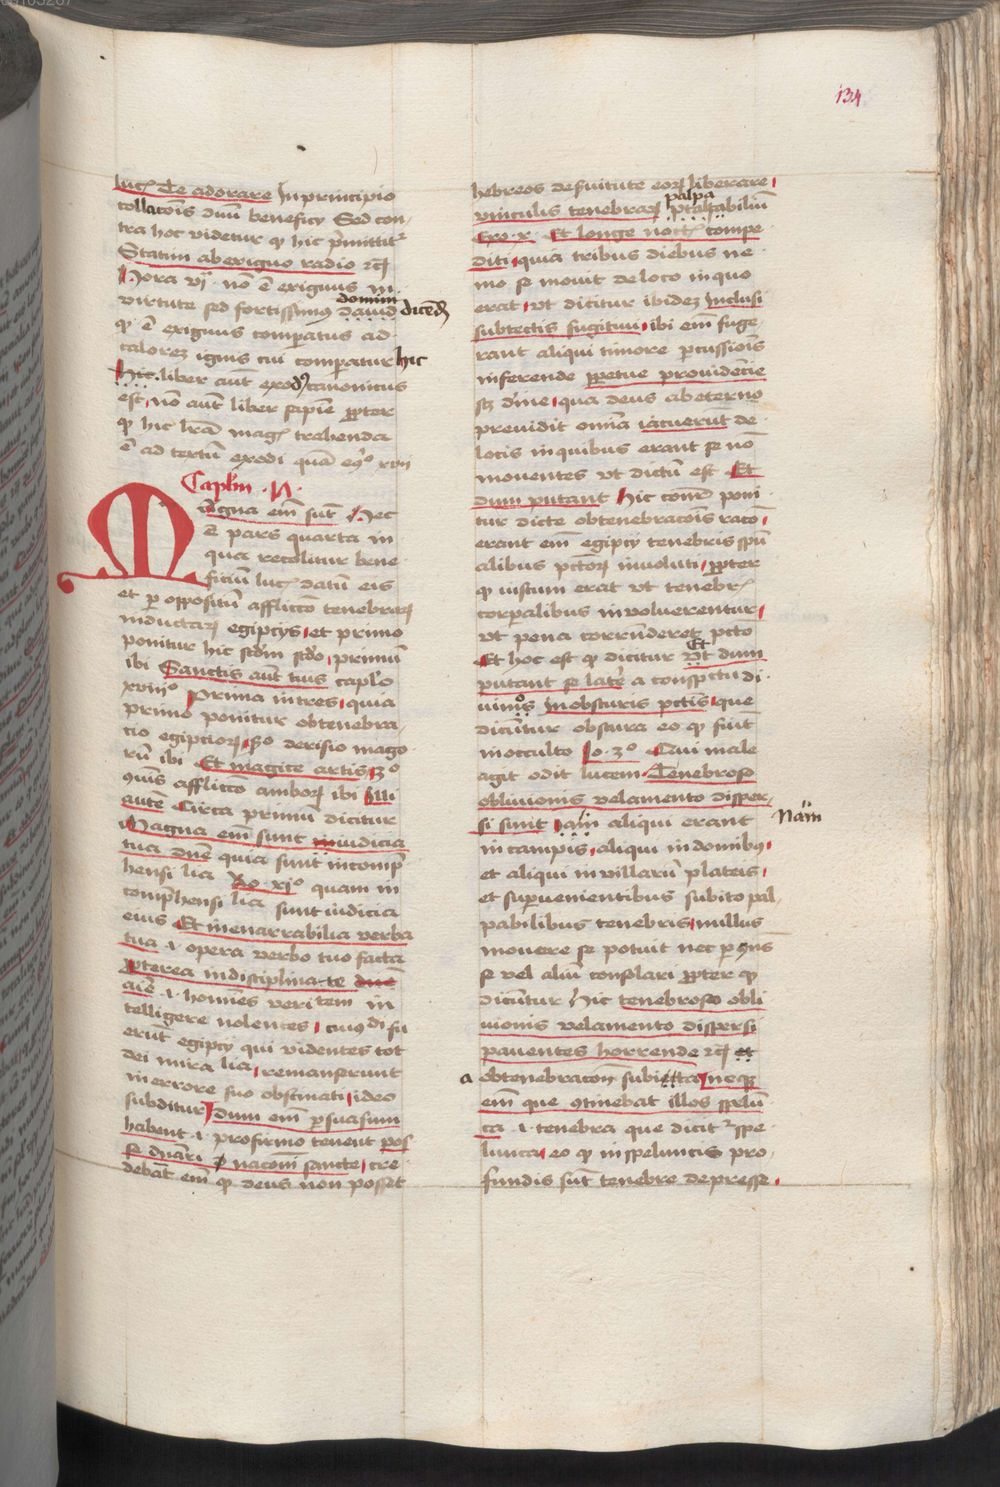 134
luc͛ Te adorare In principio
collacōis diuī beneficij Sed con
tra hoc videtur ꝙ hic p̄mittit᷑
Statim ab exiguo radio ⁊cꝫ
Hora vj nō ē exiguus in
virtute sed fortissimꝰ dauid domini dicēdꝫ
ꝙ ē exiguus compatus ad
calorez ignis cui compatur hic
hic liber aūt exodꝰ canonicus
est, nō aūt liber sapiē ꝓpter
ꝙ hic lr̄a mag͛ trahenda
ē ad textū exodi quā eꝯͦ
Caplm .II.
Magna eīm sūt Hec
ē pars quarta in
qua recolitur bene
ficiū luc͛ datū eis
et ꝑ oppositū afflicco tenebraꝝ
inductaꝝ egipcijs, et primo
ponitur hic scd̄m scd̄o, primū
ibi Sanctis aūt tuis caplo
xviijͦ Prima in tres, quia
primo ponitur obtenebra
cio egipcioꝝ, 2ͦ derisio mago
rū ibi Et magice artis, 3ͦ
ꝯīs afflicco amboꝝ ibi Illi
autē Circa primū dicitur
Magna eīm sunt iudicia
tua dn̄e quia sunt incomp̄
hensi lia Ro. xjͦ quam in
comp̄hensi lia sunt iudicia
eius Et inenarrabilia verba
tua .i. opera verbo tuo facta
ꝓpterea indisciplinate
aīe .i. hoīes veritem in
telligere nolentes, cuiꝰdi fu
erūt egipcij qui videntes tot
dei mira lia, remanserunt
in errore suo obstinati, ideo
subditur, dum eīm ꝑsuasum
habent .i. ꝓ firmo tenent pos
se dn̄ari nacoīi sancte, cre
debāt eīm ꝙ deus non posset
hebreos de s̄uitute eoꝝ liberare,
vinculis tenebraꝝ palpabiliū
Exo. x. Et longe noct͛ compe
diti, quia tribus diebus ne
mo se mouit de loco in quo
erat, vt dicitur ibidez Inclusi
sub tectis fugitiui, ibi eīm fuge
rant aliqui timore ꝑcussiois
inferende ꝑpetue prouidencie
scꝫ diīne, qua deus ab eterno
preuidit omīa iacuerūt de
locis in quibus erant se nō
mouentes vt dictū est Et
dum putant Hic cōnr̄ poni
tur dicte obtenebracois raco,
erant eīm egipcij tenebris spū
alibus pctoꝝ inuoluti, ꝓpter
ꝙ iustum erat vt tenebr͛
corꝑalibus inuoluerentur,
vt pena corrn̄deret pcto
Et hoc est ꝙ dicitur Et dum
putant se latē a conspectu di
uinoꝰ In obscuris pctis, que
dicūtur obscura eo ꝙ fiūt
in occulto Io. 3ͦ Qui male
agit odit lucem Tenebroso
obliuionis velamento disper
si sunt Nam aliqui erant
in campis, aliqui in domibꝰ,
et aliqui in villarū plateis,
et suꝑuenientibus subito pal
pabilibus tenebris, nullus
mouere se potuit nec ꝑ ꝯn̄s
se vel aliū consolari ꝓpter ꝙ
dicūtur hic tenebroso obli
uionis velamento dispersi
pauentes horrende ⁊cꝫ
a obtenebracoīi subiecta, neqꝫ
eīm que ꝯtinebat illos spelū
ca .i. tenebra que dicit᷑ spe
lunca, eo ꝙ in speluncis pro
fundis sūt tenebre depresse,